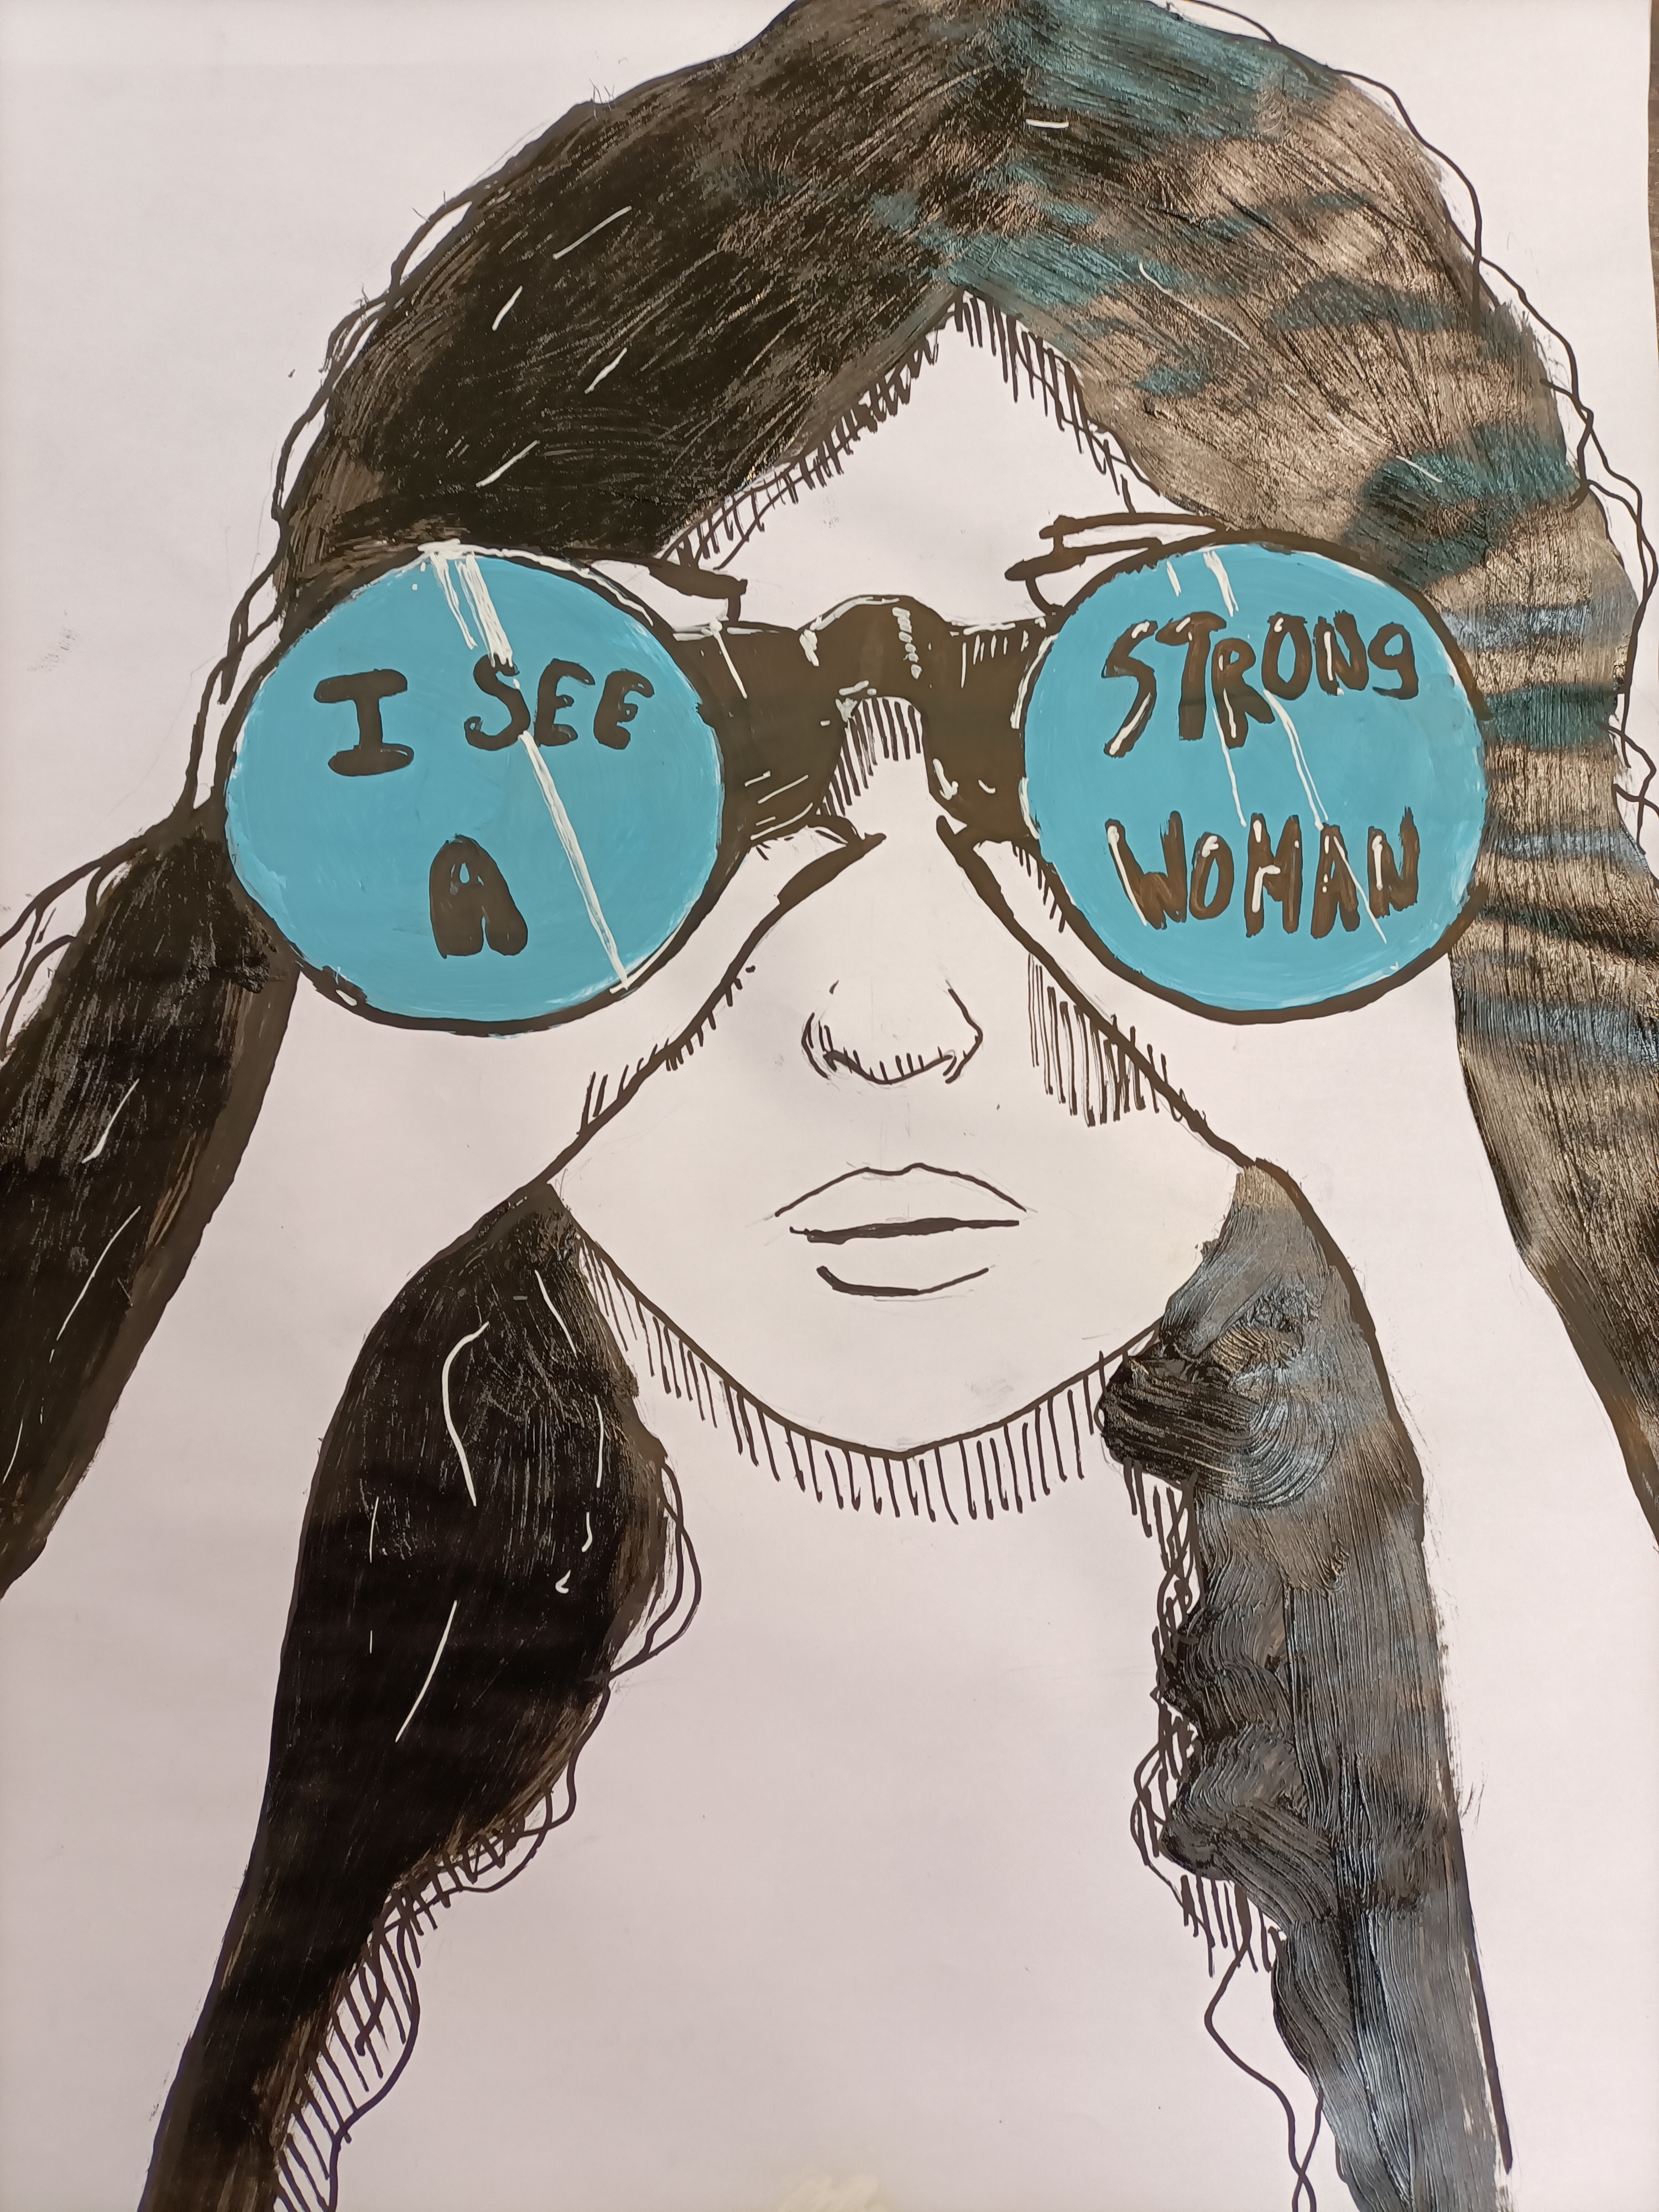 I SEE
A
STRONG
WOMAN